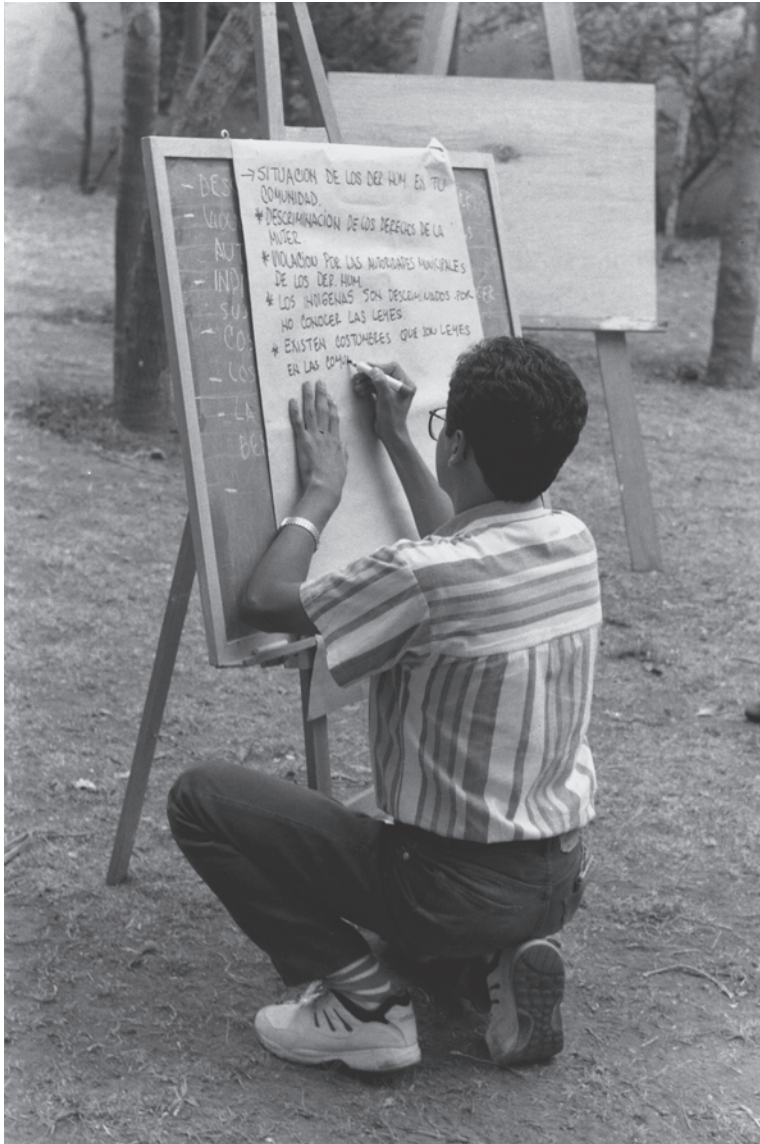 → SITUACION DE LOS DER HUM EN TU
COMUNIDAD.
* DESCRIMINACION DE LOS DERECHOS DE LA
MUJER
* VIOLACION POR LAS AUTORIDADES MUNICIPALES
DE LOS DER. HUM.
* LOS INDIGENAS SON DESCRIMINADOS POR
NO CONOCER LAS LEYES
* EXISTEN COSTUMBRES QUE SON LEYES
EN LAS COMUN
- DES
- VIO
AUT
- INDI
SUS
- COS
- LOS
- LA
BE
-